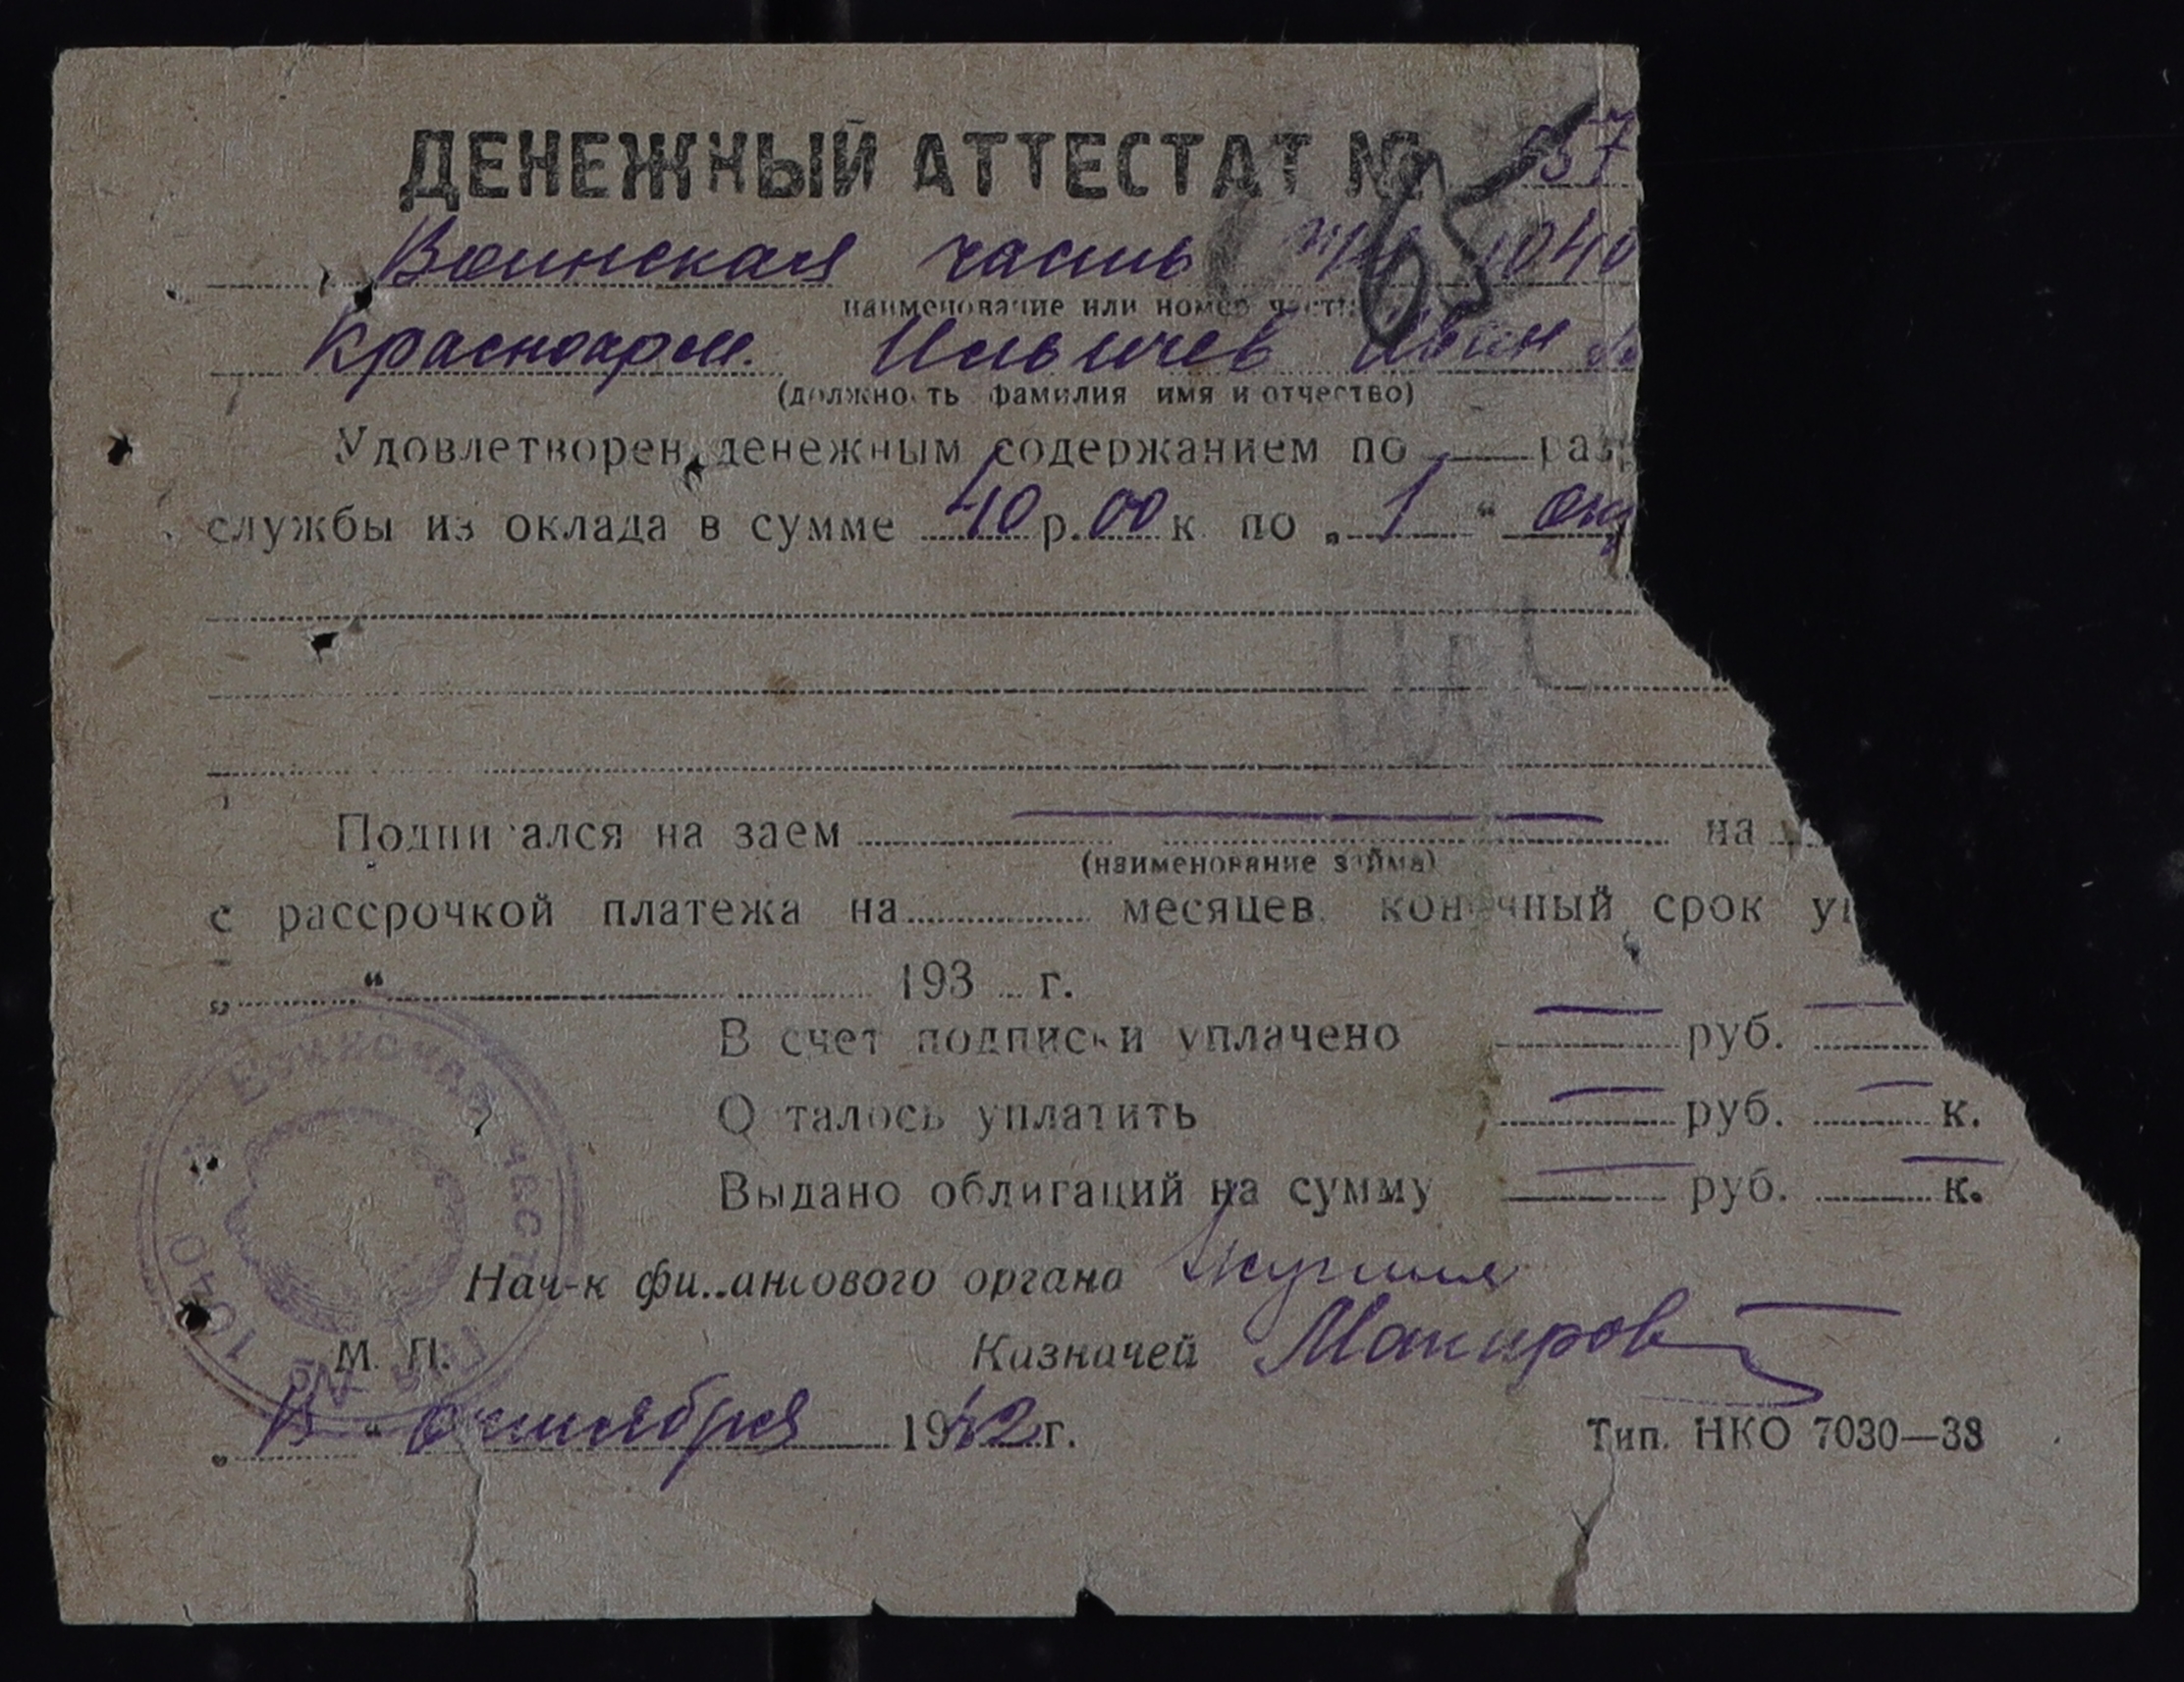 ДЕНЕЖНЫЙ АТТЕСТАТ № 57
65
Воинская часть п/п 1040
наименование или номер части
Красноарм. Ильичев Иван
(должность фамилия имя и отчество)
Удовлетворен денежным содержанием по — раз
службы из оклада в сумме 40 р. 00 к. по „ 1 “ ок
Подписался на заем — на
(наименование займа)
с рассрочкой платежа на месяцев. конечный срок
„ “ 193 г.
В счет подписки уплачено — руб. —
Осталось уплатить — руб. — к.
Выдано облигаций на сумму — руб. — к.
Нач-к финансового органа
М. П. Казначей
„ “ октября 1942 г.
Тип. НКО 7030—38
Воинская часть
ППС № 1040